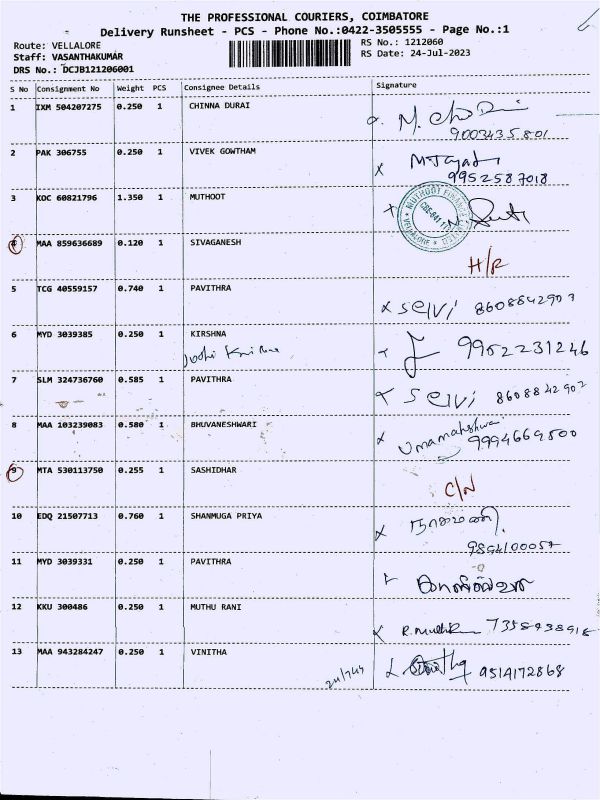 THE PROFESSIONAL COURIERS, COIMBATORE
Delivery Runsheet - PCS - Phone No.:0422-3505555 - Page No.:1
Route: VELLALORE
RS No.: 1212060
Staff: VASANTHAKUMAR
RS Date: 24-Jul-2023
DRS No.: DCJB121206001
S No Consignment No Weight PCS Consignee Details Signature
1 IXM 504207275 0.250 1 CHINNA DURAI
9003435801
2 PAK 306755 0.250 1 VIVEK GOWTHAM
9952587018
3 KOC 60821796 1.350 1 MUTHOOT
MUTHOOT FINANCE
4 MAA 859636689 0.120 1 SIVAGANESH
H/R
5 TCG 40559157 0.740 1 PAVITHRA
x selvi 8608842907
6 MYD 3039385 0.250 1 KIRSHNA
9952231246
7 SLM 324736760 0.585 1 PAVITHRA
x selvi 8608842907
8 MAA 103239083 0.580 1 BHUVANESHWARI
x Umamaheshwari 9994669500
9 MTA 530113750 0.255 1 SASHIDHAR
C/N
10 EDQ 21507713 0.760 1 SHANMUGA PRIYA
x நாகமணி
9894100057
11 MYD 3039331 0.250 1 PAVITHRA
12 KKU 300486 0.250 1 MUTHU RANI
7358938918
13 MAA 943284247 0.250 1 VINITHA
9514172868